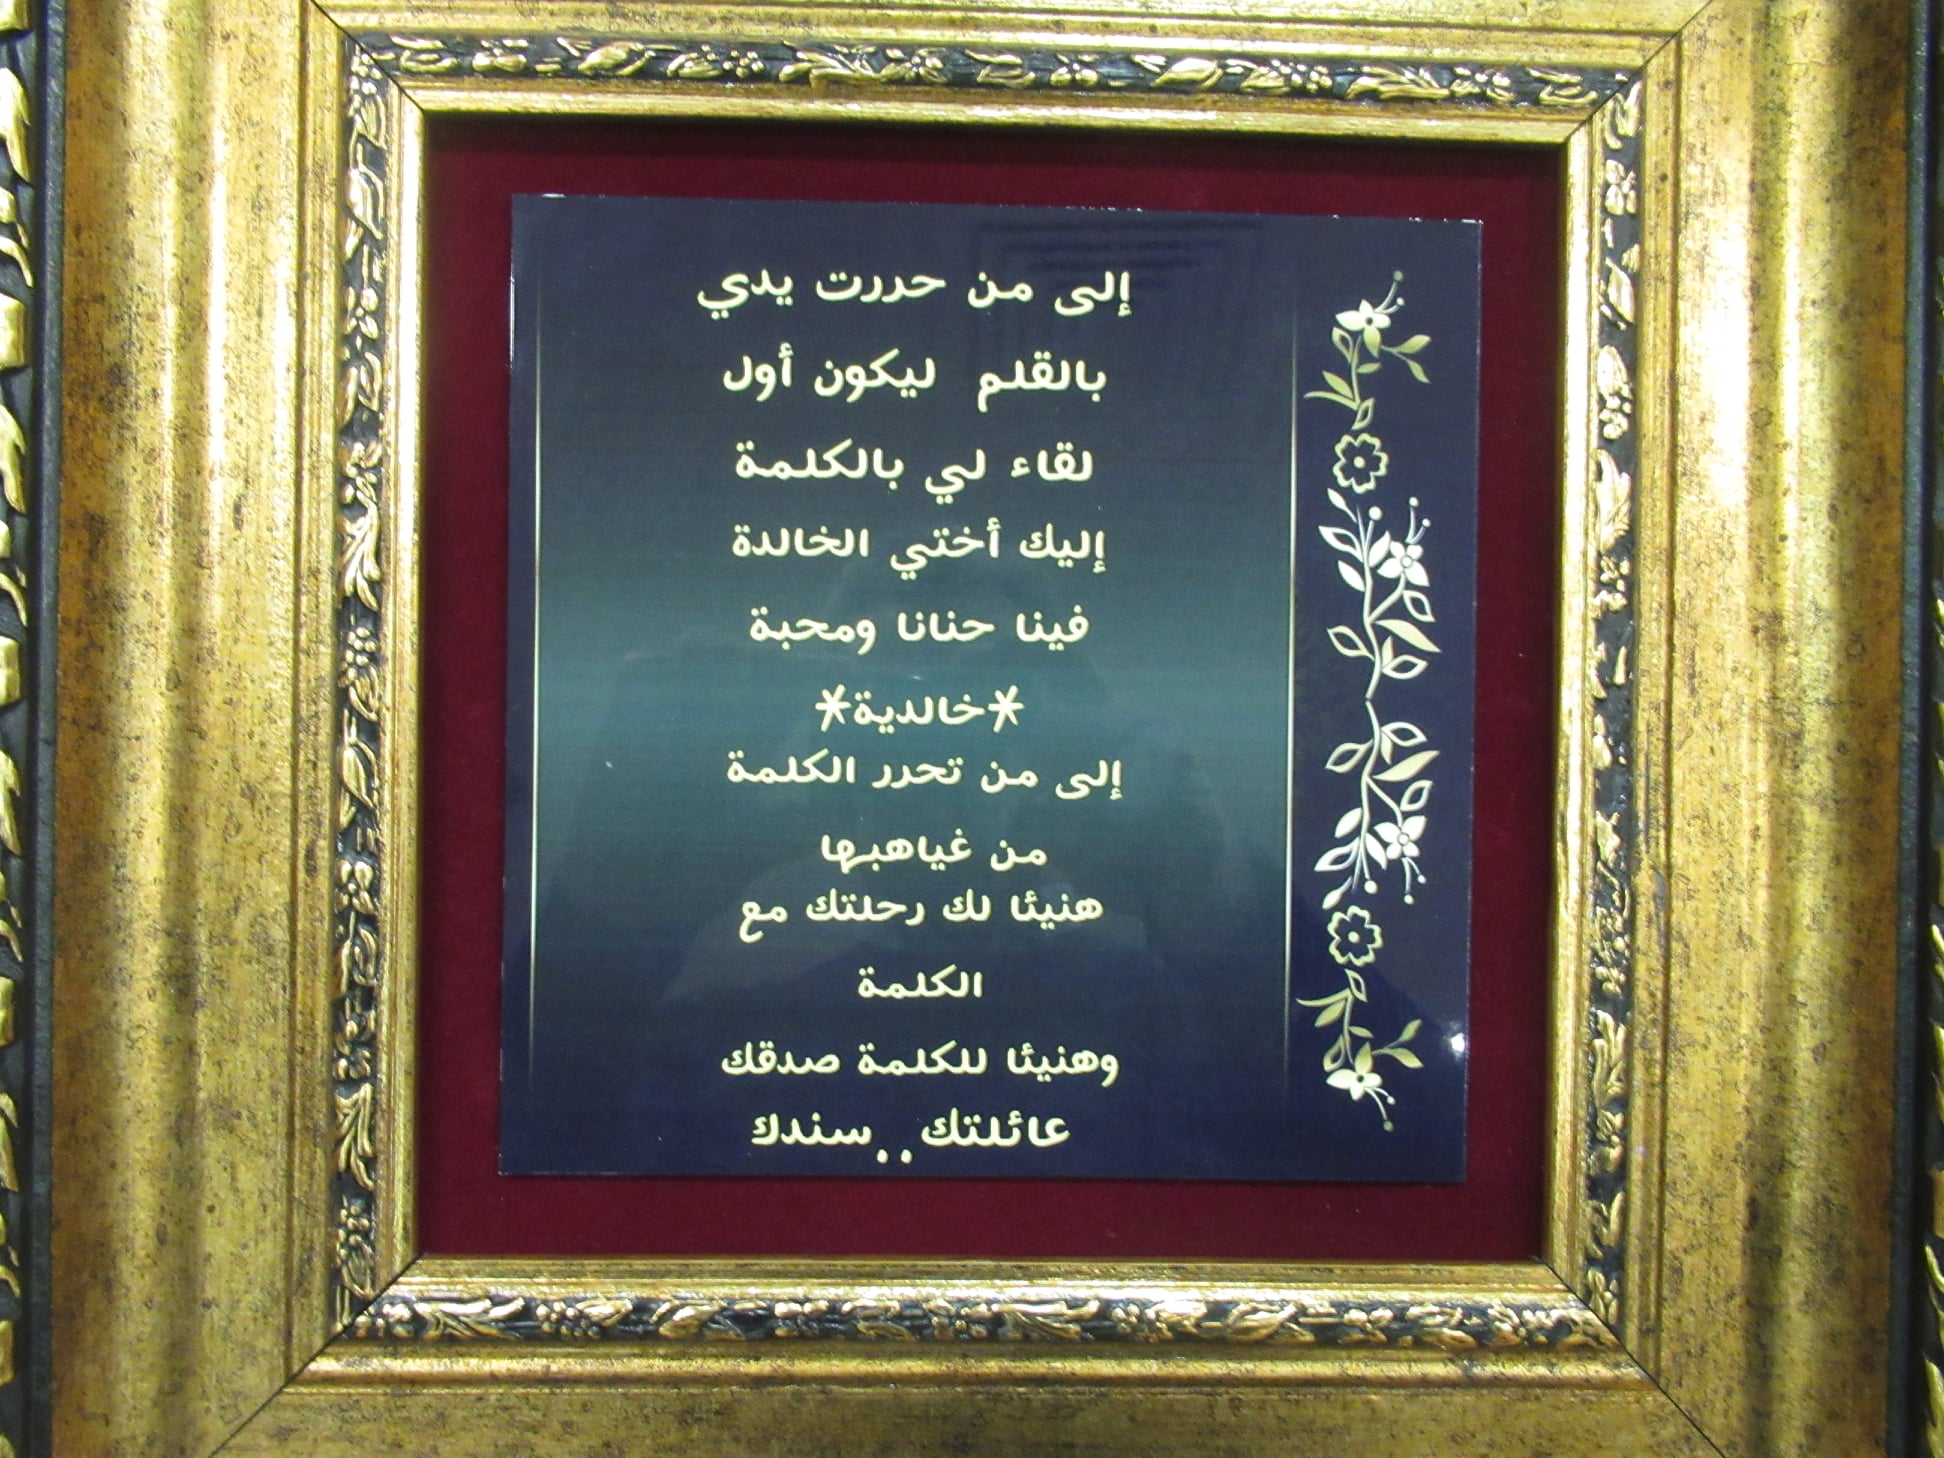 إلى من حررت يدي
بالقلم ليكون أول
لقاء لي بالكلمة
إليك أختي الخالدة
فينا حنانا ومحبة
*خالدية*
إلى من تحرر الكلمة
من غياهبها
هنيئا لك رحلتك مع
الكلمة
وهنيئا للكلمة صدقك
عائلتك..سندك